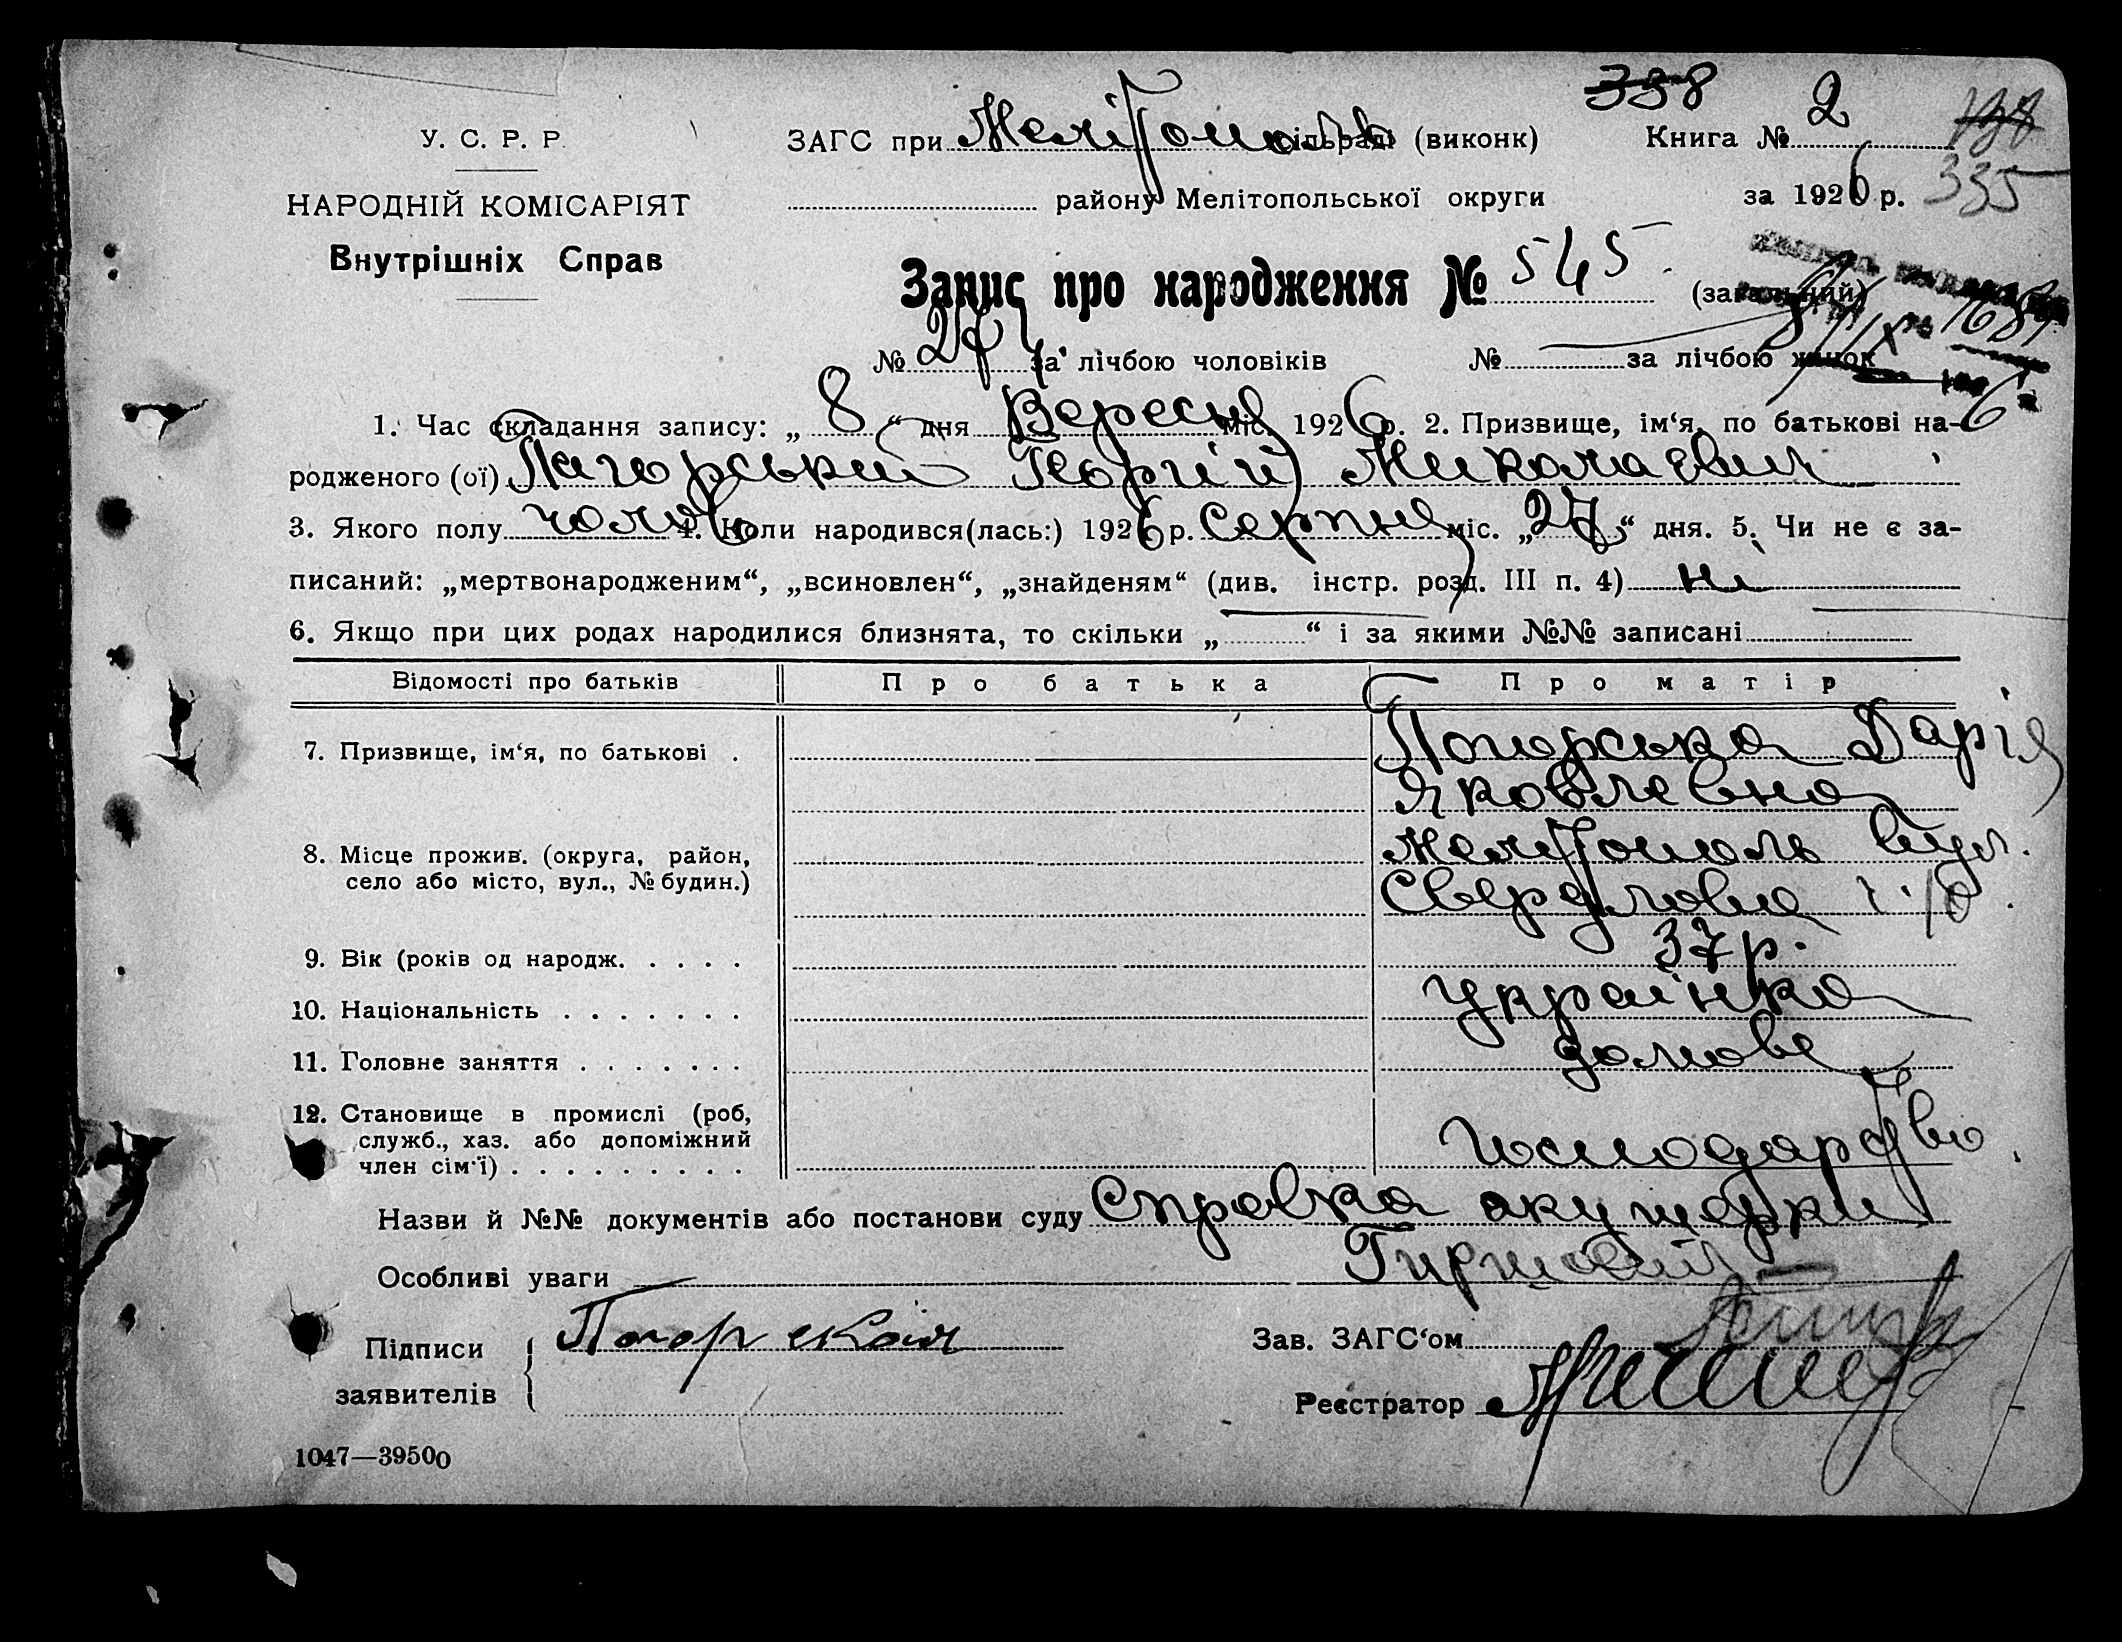 338 2
У. С. Р. Р. ЗАГС при Мелітополь сільраді (виконк) Книга № 138
НАРОДНІЙ КОМІСАРІЯТ району Мелітопольської округи за 1926 р. 335
Внутрішніх Справ
Запис про народження № 545. (загальний)
№ 277 за лічбою чоловіків № за лічбою жінок
1. Час складання запису: „ 8 “ дня Вересня міс. 1926 р. 2. Призвище, ім‘я, по батькові на-
родженого (ої) Погорський Георгій Миколаєвич
3. Якого полу чолов 4. Коли народився(лась:) 1926 р. серпня міс. „ 27 “ дня. 5. Чи не є за-
писаний: „мертвонародженим“, „всиновлен“, „знайденям“ (див. інстр. розд. III п. 4) ні
6. Якщо при цих родах народилися близнята, то скільки „ “ і за якими №№ записані
Відомості про батьків Про батька Про матір
7. Призвище, ім‘я, по батькові . Погорська Дарія
Яковлевна
8. Місце прожив. (округа, район, Мелітополь вул.
село або місто, вул., № будин.) Свердлова 10
9. Вік (років од народж. . . . . 37 р.
10. Національність . . . . . . . українка
11. Головне заняття . . . . . . . домове
12. Становище в промислі (роб,
служб., хаз. або допоміжний господарство
член сім‘ї) . . . . . . . . .
Назви й №№ документів або постанови суду Справка акушерки
Особливі уваги
Підписи Погорская Зав. ЗАГС‘ом
заявителів Реєстратор
1047—39500